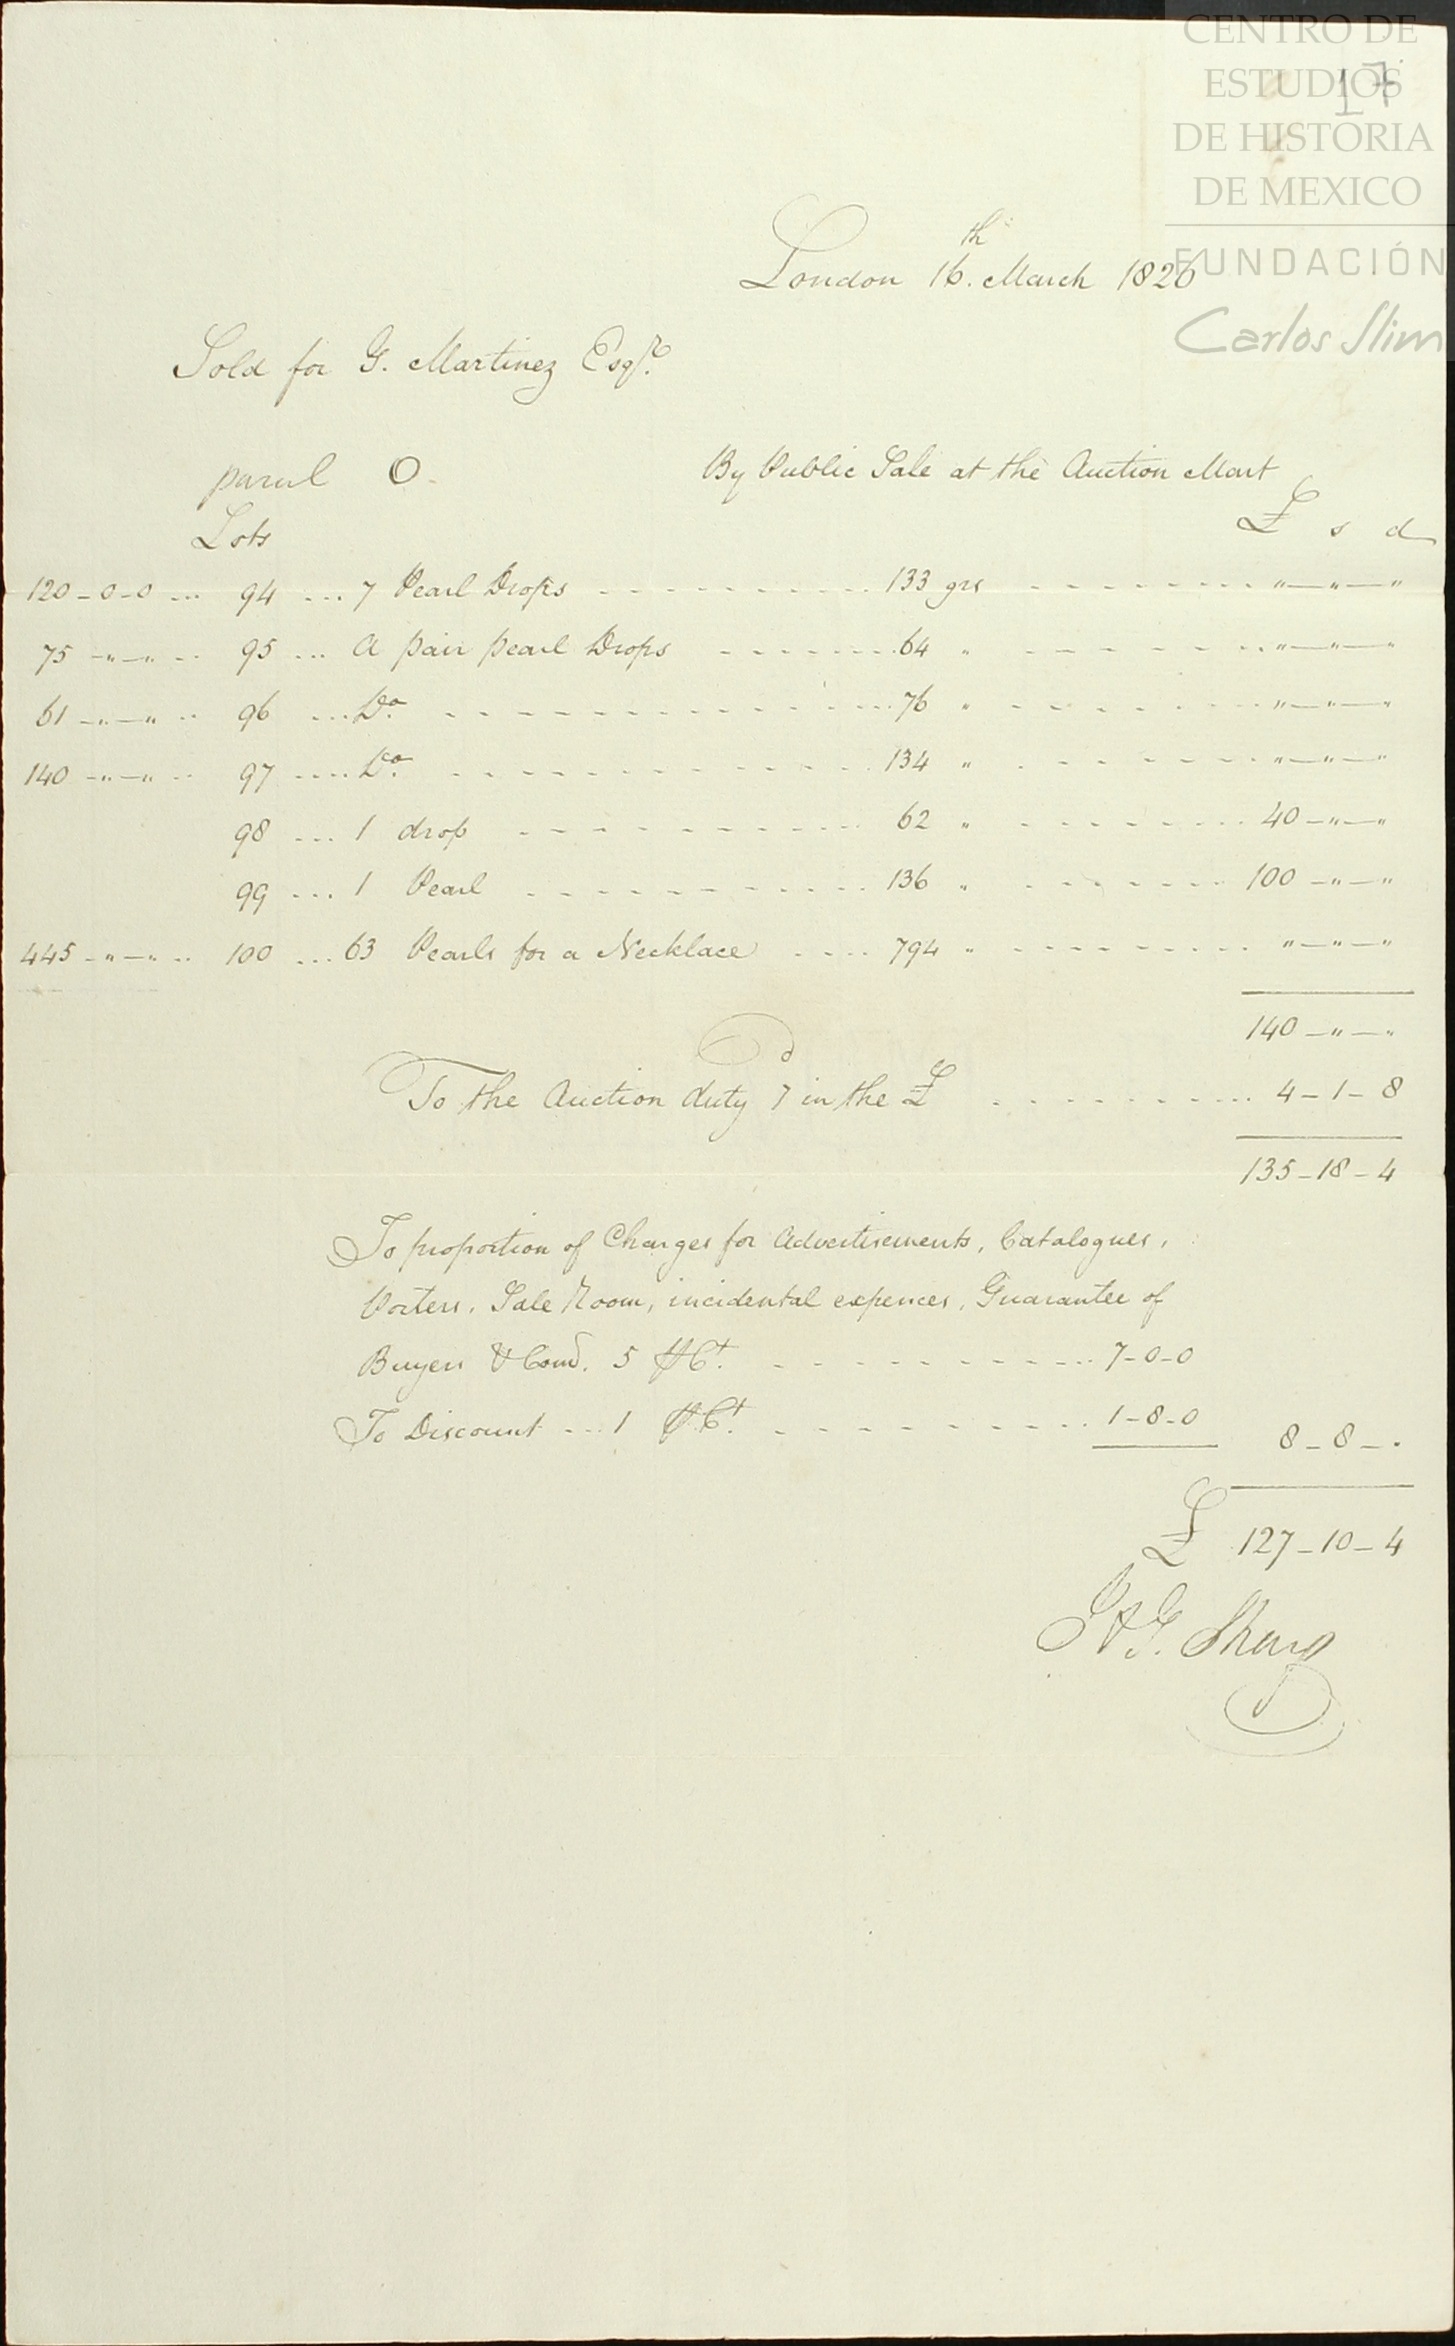 CENTRO DE
ESTUDIOS
DE HISTORIA
DE MEXICO
FUNDACIÓN
Carlos Slim
17
London 16.th March 1826
Sold for G. Martinez Esqre.
parcel O. By Public Sale at the Auction Mart
Lots £ s d
120-0-0 ... 94 ... 7 Pearl Drops - - - 133 grs - - - "—"—"
75 -"—" .. 95 ... A pair pearl Drops - - - 64 " - - - "—"—"
61 -"—" .. 96 ... Do. - - - 76 " - - - "—"—"
140 -"—" .. 97 .... Do. - - - 134 " - - - "—"—"
98 ... 1 drop - - - 62 " - - - 40 —"—"
99 ... 1 Pearl - - - 136 " - - - 100 —"—"
445 -"—" .. 100 ... 63 Pearls for a Necklace .... 794 " - - - "—"—"
140 —"—"
To the Auction duty 7d in the £ - - - 4-1-8
135-18-4
To proportion of Charges for Advertisements, Catalogues,
Porters, Sale Room, incidental expences, Guarantee of
Buyers & Comn. 5 ⅌ Ct. - - - 7-0-0
To Discount ... 1 ⅌ Ct. - - - 1-8-0 8-8-.
£ 127-10-4
J & G. Sharp